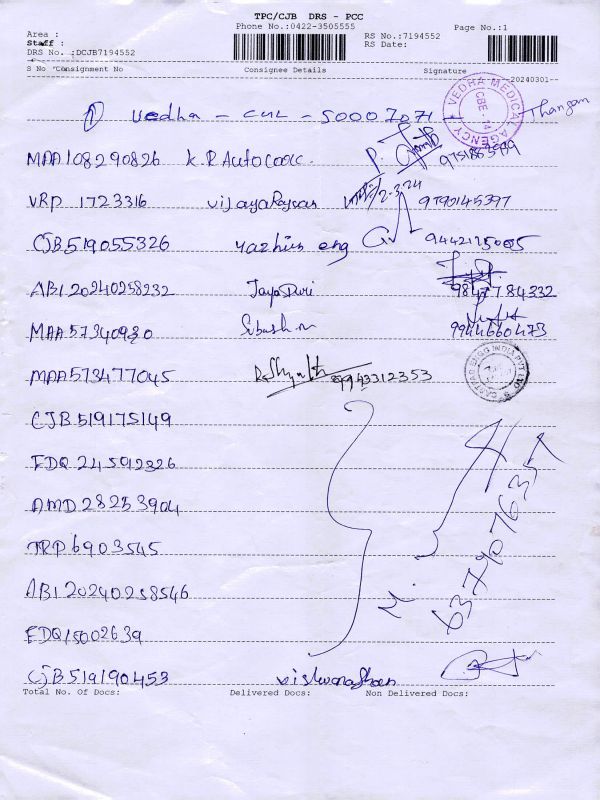 TPC/CJB DRS - PCC
Phone No.:0422-3505555
Page No.:1
Area :
Staff :
DRS No. :DCJB7194552
RS No.:7194552
RS Date:
S No Consignment No Consignee Details Signature
20240301
① Vedha - CUL - 50007071 Thangam
VEDHA MEDICAL AGENCY CBE-14
MAA108290826 K.P. Autocooc. 9751883999
VRP 1723316 vijayaRagvan 2-3-24 9790145397
CJB519055326 yazhius eng 9442125005
ABI 20240258232 JayaPuri 9847784332
MAA57340930 Subash m 9944660473
MAA573477045 9943312353
CJB519175149
EDQ 245912326
AMD 28253904
TRP 6903545
6379076357
ABI 20240258546
EDQ15002639
CJB519190453 viswanathan
Total No. Of Docs: Delivered Docs: Non Delivered Docs: